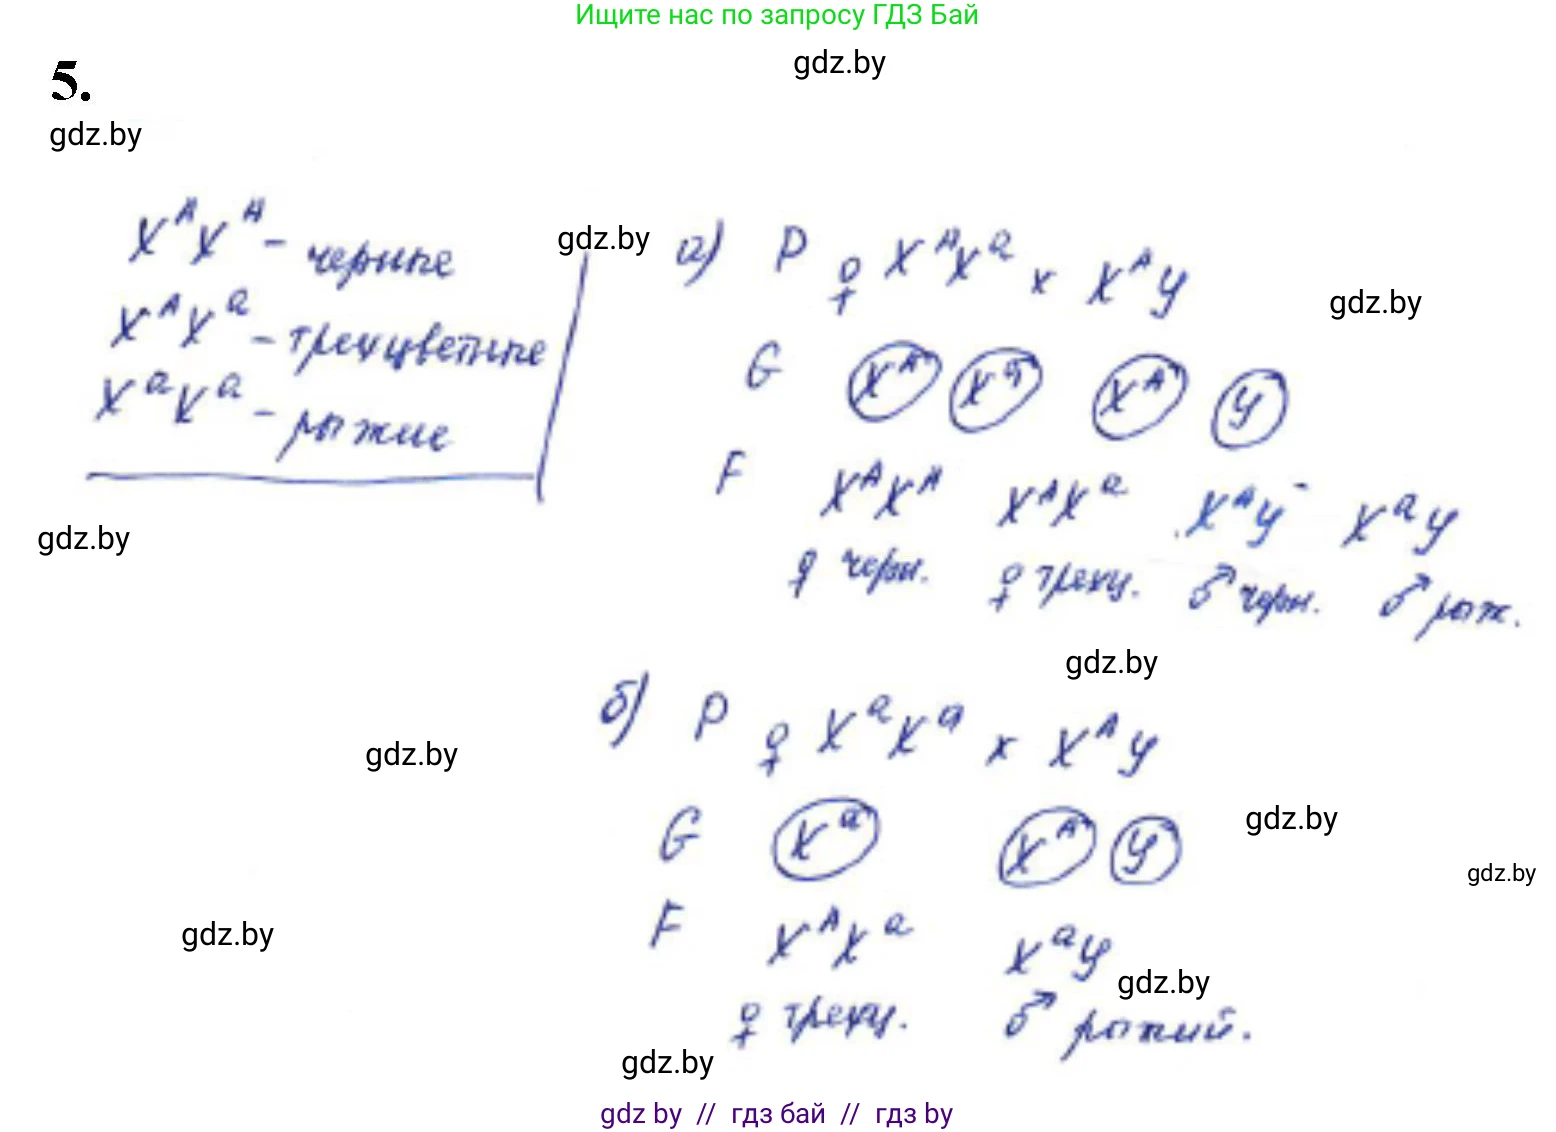 Ищите нас по запросу ГДЗ Бай
gdz.by
5.
gdz.by
X^A X^A - черные
X^A X^a - трехцветные
X^a X^a - рыжие
gdz.by
а) P ♀ X^A X^a x X^A У
gdz.by
G X^A X^a X^A У
F X^A X^A X^A X^a X^A У X^a У
♀ черн. ♀ трехц. ♂ черн. ♂ рыж.
gdz.by
gdz.by
б) P ♀ X^a X^a x X^A У
gdz.by
G X^a X^A У
gdz.by
gdz.by
F X^A X^a X^a У
gdz.by
gdz.by
♀ трехц. ♂ рыжий.
gdz.by
gdz by // гдз бай // гдз by